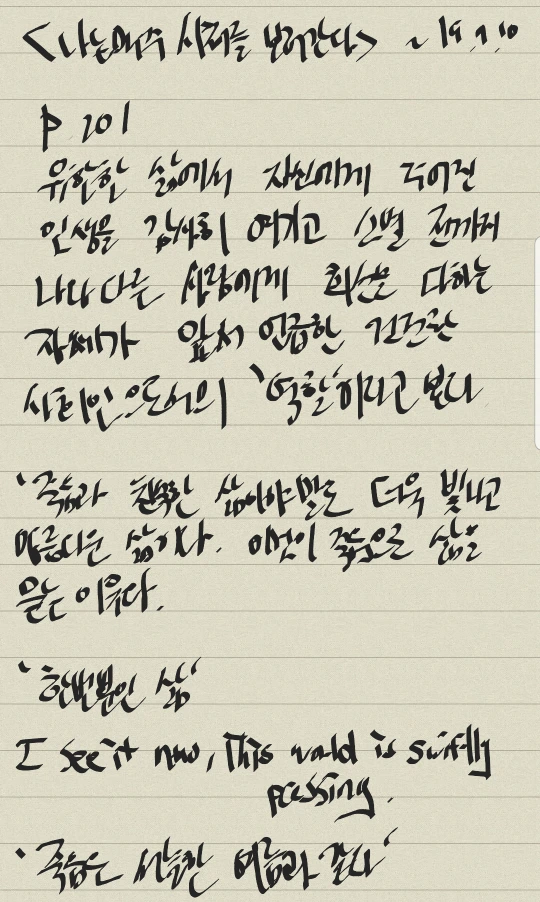 <나는 매주 시체를 보러간다> ~ 19.9.10
P 201
유한한 삶에서 자신에게 주어진
인생을 감사히 여기고 산별 전까지
나와 다른 사람에게 최선을 다하는
자체가 앞서 언급한 건전한
사회인으로서의 '역할'이라고 본다
'죽음과 친숙한 삶이야말로 더욱 빛나고
아름다운 삶이다. 이것이 죽음으로 삶을
묻는 이유다.
'한번뿐인 삶'
I see it now, This world is swiftly
passing.
'죽음은 서늘한 여름과 같다'